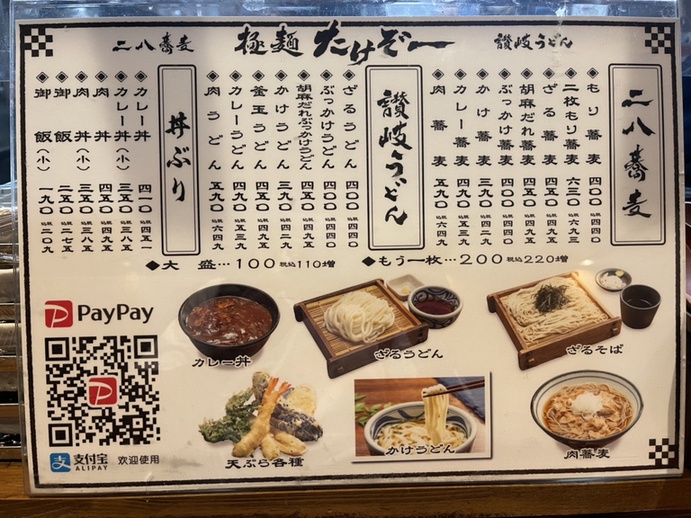 二八蕎麦
極麺 たけぞー
讃岐うどん
二八蕎麦
◈もり蕎麦 四〇〇 税込四四〇
◈二枚もり蕎麦 六三〇 税込六九三
◈ざる蕎麦 四五〇 税込四九五
◈胡麻だれ蕎麦 四五〇 税込四九五
◈ぶっかけ蕎麦 四〇〇 税込四四〇
◈かけ蕎麦 三九〇 税込四二九
◈カレー蕎麦 四九〇 税込五三九
◈肉蕎麦 五九〇 税込六四九
讃岐うどん
◈ざるうどん 四〇〇 税込四四〇
◈ぶっかけうどん 四〇〇 税込四四〇
◈胡麻だれぶっかけうどん 四五〇 税込四九五
◈かけうどん 三九〇 税込四二九
◈釜玉うどん 四五〇 税込四九五
◈カレーうどん 四九〇 税込五三九
◈肉うどん 五九〇 税込六四九
丼ぶり
◈カレー丼 四一〇 税込四五一
◈カレー丼(小) 三五〇 税込三八五
◈肉丼 四五〇 税込四九五
◈肉丼(小) 三五〇 税込三八五
◈御飯 二五〇 税込二七五
◈御飯(小) 一九〇 税込二〇九
◆大 盛…100税込110増
◆もう一枚…200税込220増
PayPay
支付宝
ALIPAY
欢迎使用
カレー丼
ざるうどん
ざるそば
天ぷら各種
かけうどん
肉蕎麦